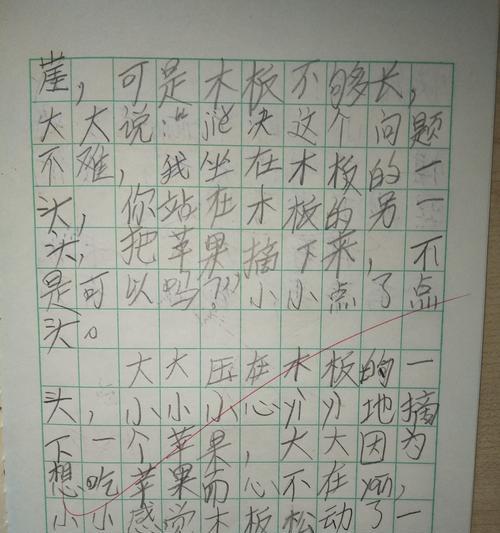 崖,可是木板不够长,
大大说:“决这个问题
不难,我坐在木板的一
头,你站在木板的另一
头,把苹果摘下来,不
是可以吗?”小小点了点
头。
大大压在木板的一
头,小小小心地摘
下一个苹果,大大因为
想吃苹果而心不在焉,
小小感觉木板松动了一